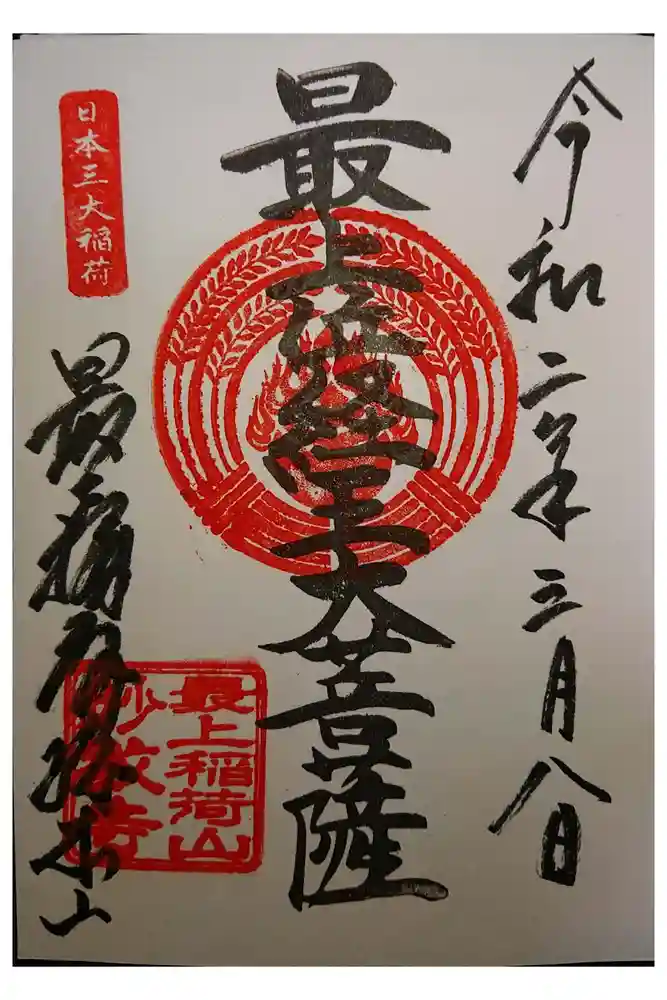 令和二年三月八日
最上位経王大菩薩
日本三大稲荷
最上稲荷総本山
最上稲荷山
妙教寺